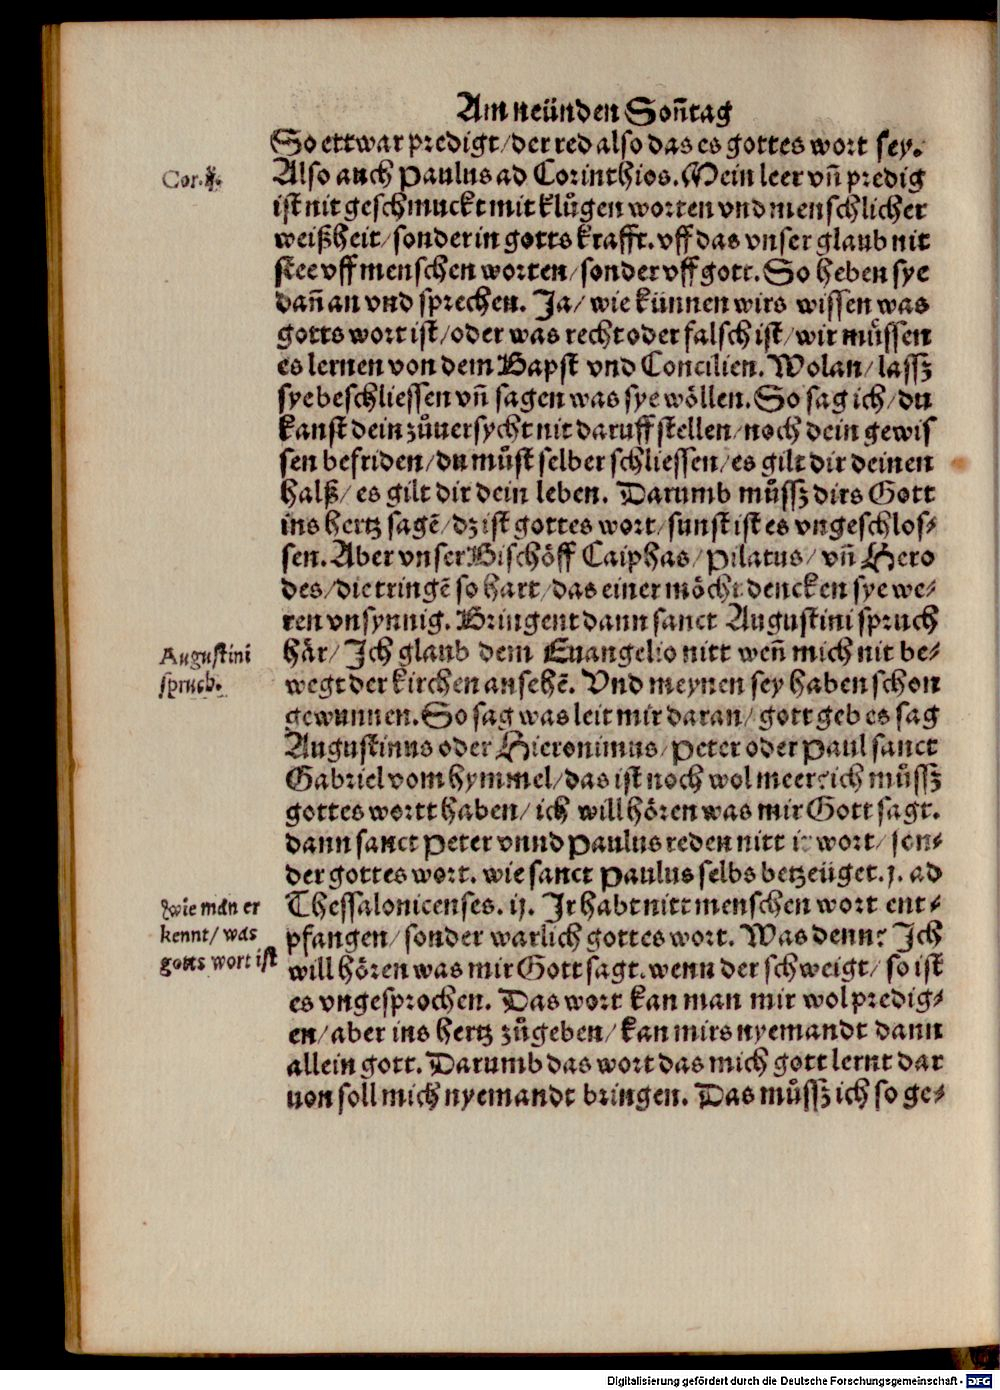 Am neünden Soñtag
So ettwar predigt/der red also das es gottes wort sey.
Cor.
Also auch Paulus ad Corinthios. Mein leer vñ predig
ist nit geschmuckt mit klůgen worten vnd menschlicher
weißheit/sonder in gotts krafft. vff das vnser glaub nit
stee vff menschen worten/sonder vff gott. So heben sye
dañ an vnd sprechen. Ja/ wie künnen wirs wissen was
gotts wort ist/oder was recht oder falsch ist/wir müssen
es lernen von dem Bapst vnd Concilien. Wolan/lassz
sye beschliessen vñ sagen was sye wöllen. So sag ich/du
kanst dein zůuersycht nit daruff stellen/noch dein gewis
sen befriden/du můst selber schliessen/es gilt dir deinen
halß/ es gilt dir dein leben. Darumb můssz dirs Gott
ins hertz sagē/dz ist gottes wort/sunst ist es vngeschlos-
sen. Aber vnser Bischöff Caiphas/Pilatus/vñ Hero
des/die tringē so hart/das einer möcht dencken sye we-
ren vnsynnig. Bringent dann sanct Augustini spruch
Augustini
spruch.
här/ Ich glaub dem Euangelio nitt weñ mich nit be-
wegt der kirchen ansehē. Vnd meynen sey haben schon
gewunnen. So sag was leit mir daran/gott geb es sag
Augustinus oder Hieronimus/Peter oder Paul sanct
Gabriel vom hymmel/das ist noch wol meer: ich můssz
gottes wortt haben/ ich will hören was mir Gott sagt.
dann sanct Peter vnnd Paulus reden nitt ir wort/ son-
der gottes wort. wie sanct Paulus selbs betzeüget. j. ad
wie man er
kennt/ was
gotts wort ist
Thessalonicenses. ij. Ir habt nitt menschen wort ent-
pfangen/sonder warlich gottes wort. Was denn? Ich
will hören was mir Gott sagt. wenn der schweigt/ so ist
es vngesprochen. Das wort kan man mir wol predig-
en/aber ins hertz zůgeben/kan mirs nyemandt dann
allein gott. Darumb das wort das mich gott lernt dar
uon soll mich nyemandt bringen. Das můssz ich so ge-
Digitalisierung gefördert durch die Deutsche Forschungsgemeinschaft - DFG